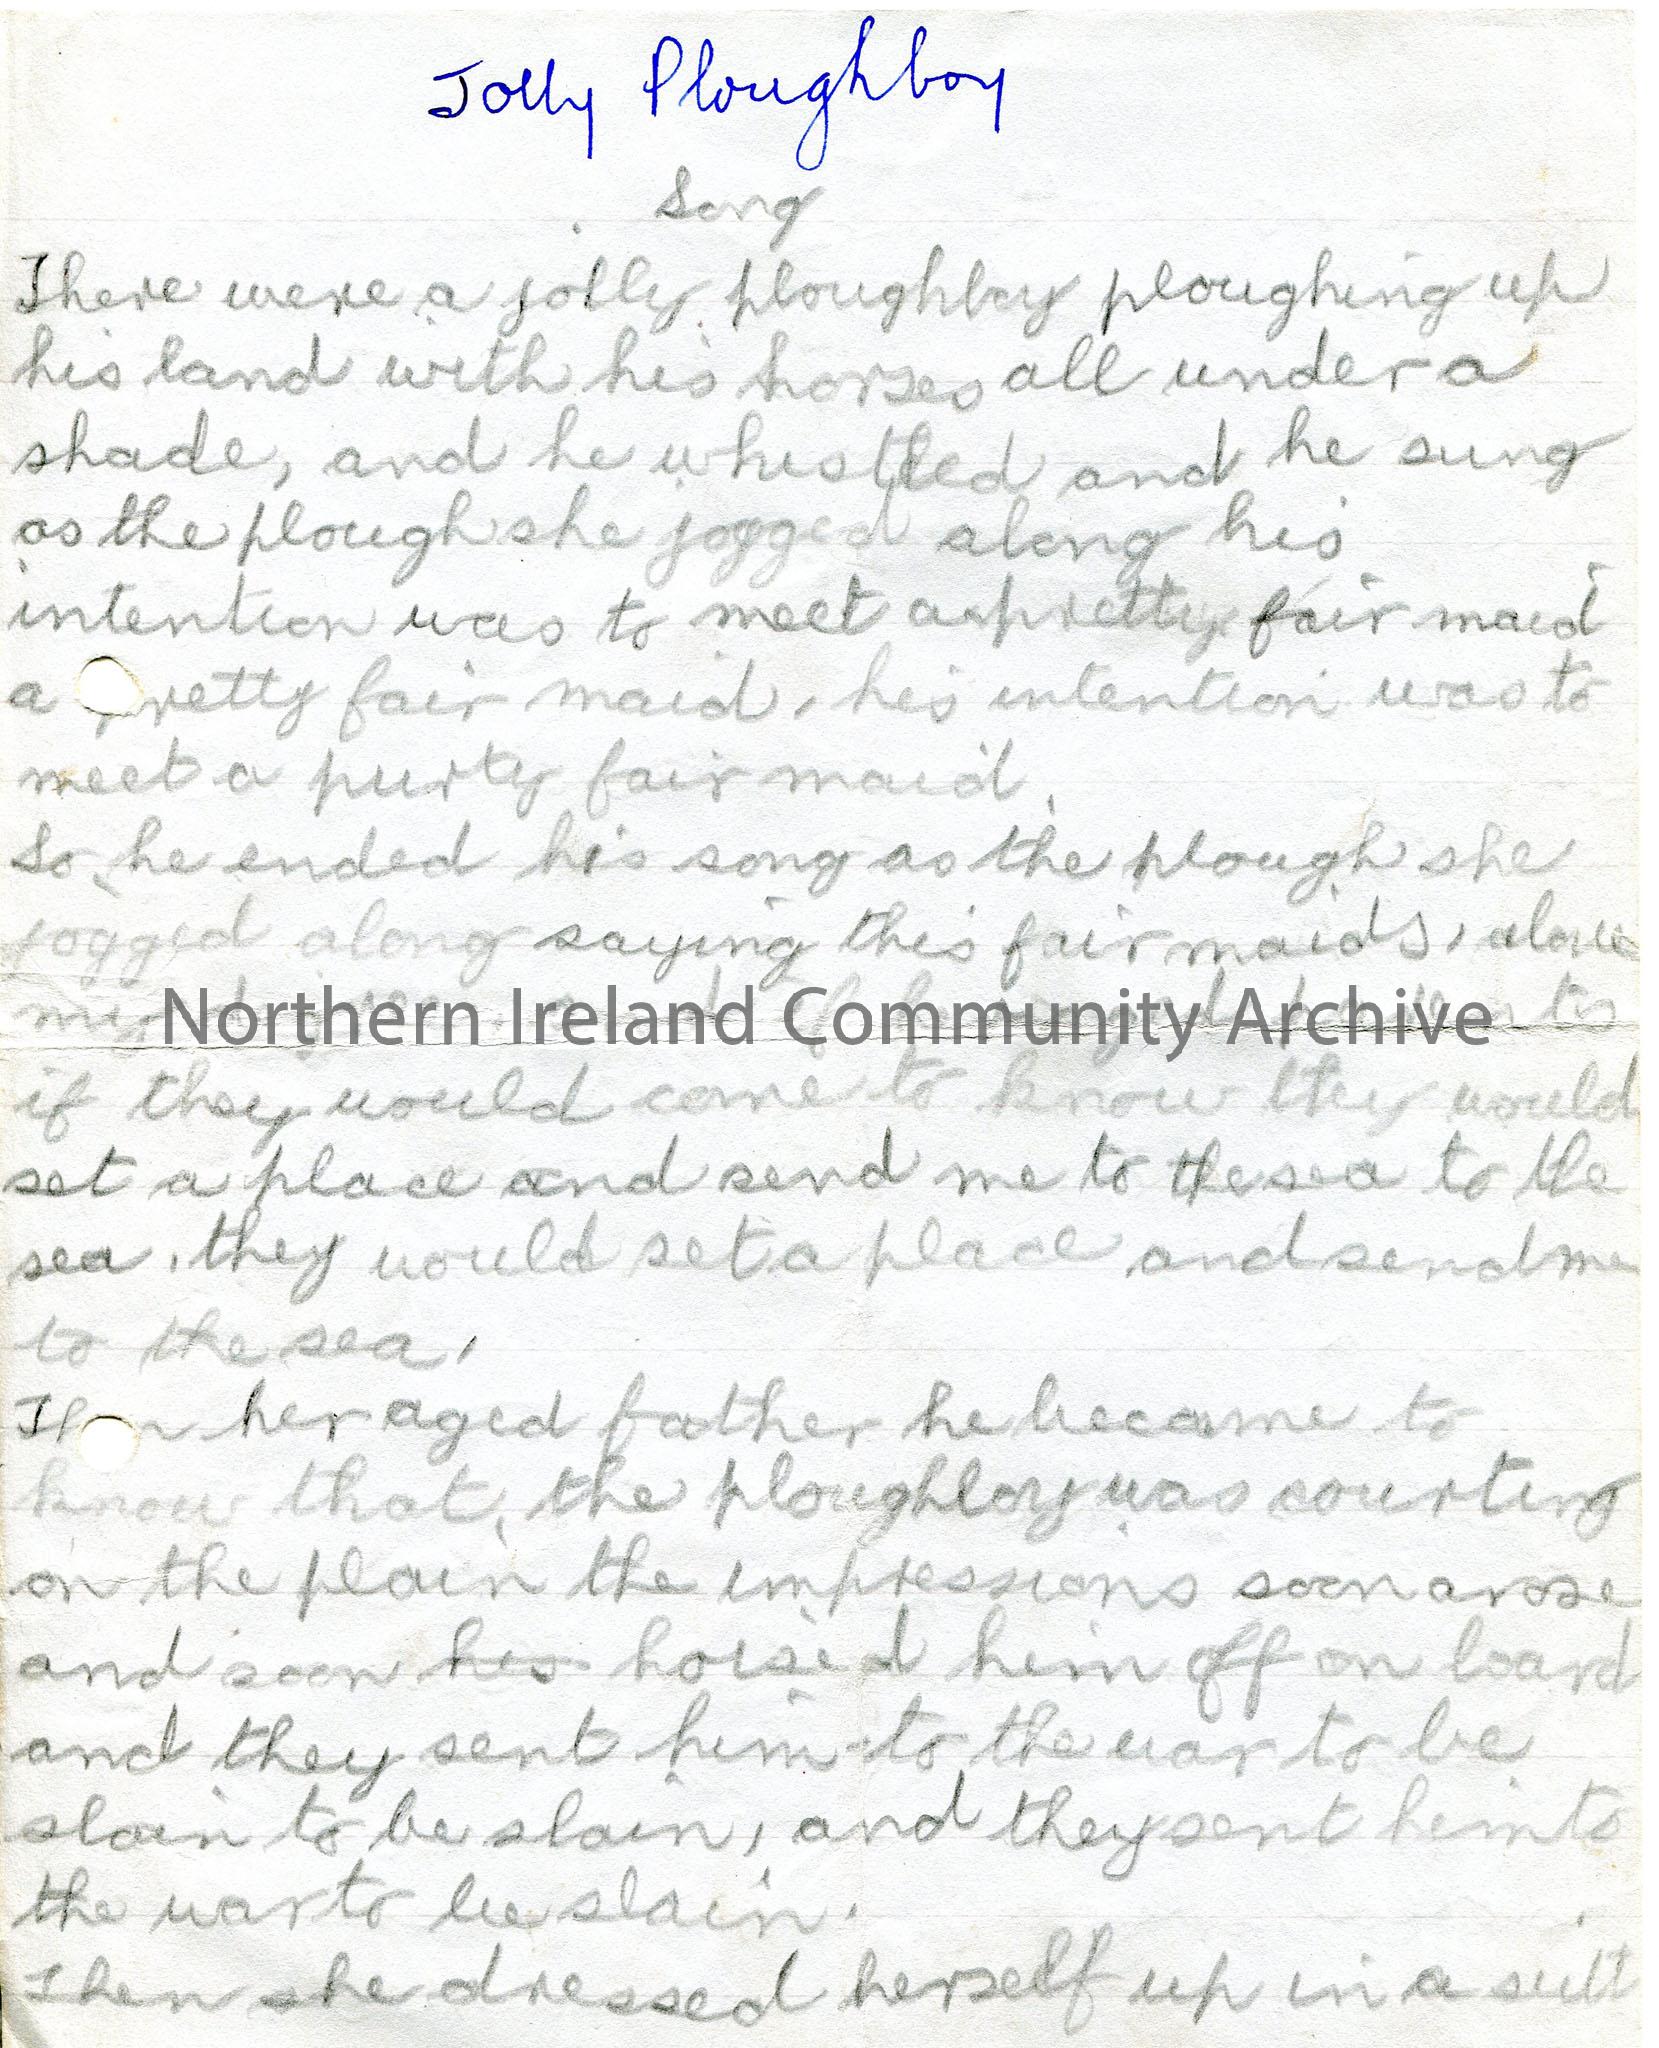 Jolly Ploughboy
Song
There were a jolly ploughboy ploughing up
his land with his horses all under a
shade, and he whistled and he sung
as the plough she jogged along his
intention was to meet a pretty fair maid
a pretty fair maid, his intention was to
meet a purty fair maid.
So he ended his song as the plough she
jogged along saying this fair maids, above
my
Northern Ireland Community Archive
if they would come to know they would
set a place and send me to the sea to the
sea, they would set a place and send me
to the sea,
Then her aged father he became to
know that, the ploughboy was courting
on the plain the impressions soon arose
and soon his hoised him off on board
and they sent him to the war to be
slain to be slain, and they sent him to
the war to be slain.
Then she dressed herself up in a suit